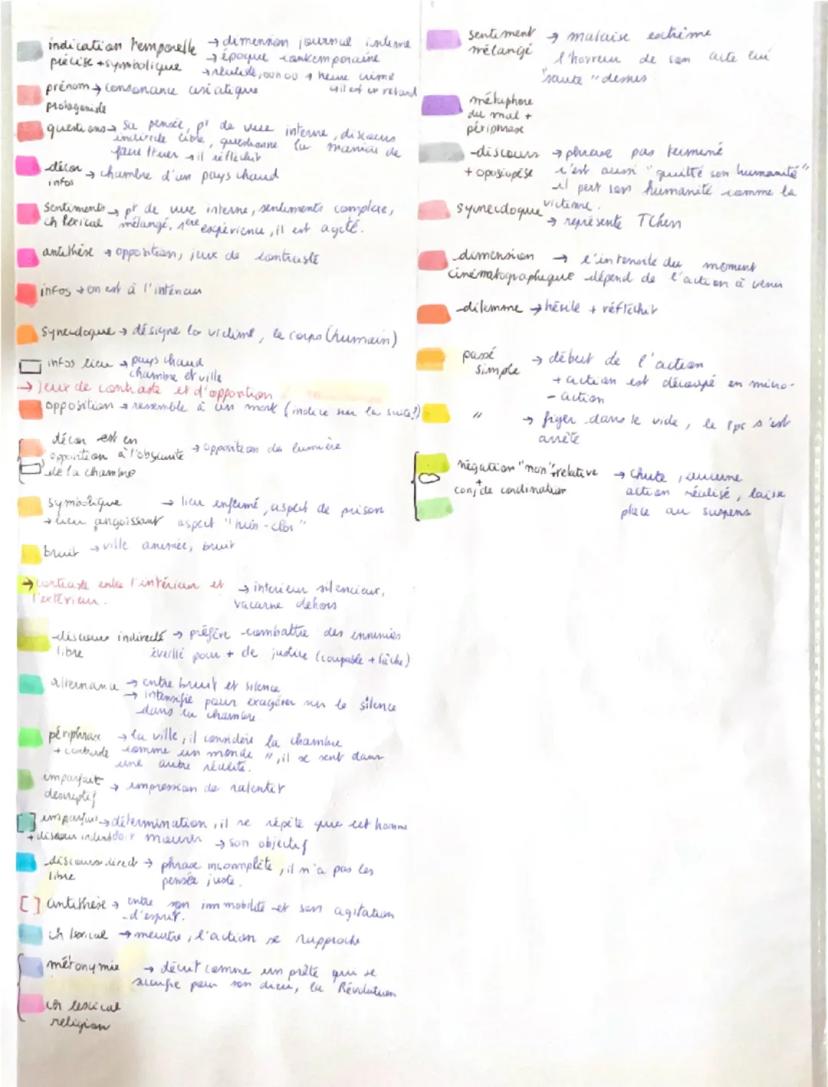 indication temporelle → dimension journal intime
précise + symbolique → époque contemporaine
→ réaliste, 00h00 → heure crime
prénom → consonance asiatique
→ il est en retard
protagoniste
questions → sa pensée, pt de vue interne, discours
indirecte libre, questionne la manière de
faire / tuer → il réfléchit
décor → chambre d'un pays chaud
infos
sentiments → pt de vue interne, sentiments complexe,
ch lexical mélangé, 1ère expérience, il est agité.
antithèse → opposition, jeux de contraste
infos → on est à l'intérieur
synecdoque → désigne la victime, le corps (humain)
infos lieu → pays chaud
chambre et ville
→ jeux de contraste et d'opposition
opposition → ressemble à un mort (indice sur la suite!)
décor est en
opposition à l'obscurité → opposition de lumière
de la chambre
symbolique → lieu enfermé, aspect de prison
→ lieu angoissant aspect "huis-clos"
bruit → ville animée, bruit
→ contraste entre l'intérieur et → intérieur silencieux,
l'extérieur. vacarme dehors
discours indirecte → préfère combattre des ennemies
libre éveillé pour + de justice (coupable + lâche)
alternance → entre bruit et silence
→ intensifie pour exagérer sur le silence
dans la chambre
périphrase → la ville, il considère la chambre
comme un monde ", il se sent dans
une autre réalité.
imparfait → impression de ralentir
descriptif
imparfait → détermination, il se répète que cet homme
+ discours doit mourir → son objectif
discours direct → phrase incomplète, il n'a pas les
libre pensée juste.
[ ] antithèse → entre son immobilité et son agitation
d'esprit.
ch lexical → meurtre, l'action se rapproche
métonymie → décrit comme un prêtre qui se
sacrifie pour son dieu, la Révolution
ch lexical
religion
sentiment → malaise extrême
mélangé l'horreur de son acte lui
"saute" dessus
métaphore
du mal +
périphrase
discours → phrase pas terminé
+ aposiopèse c'est aussi "quitté son humanité"
il perd son humanité comme la
victime.
synecdoque → représente Tchen
dimension → l'intensité du moment
cinématographique dépend de l'action à venir
dilemme → hésite + réfléchir
passé → début de l'action
simple + action est découpé en micro-
-action
" → figer dans le vide, le tps s'est
arrêté
négation "non" + relative → chute, aucune
+
conj de coordination action réalisé, laisse
place au suspens